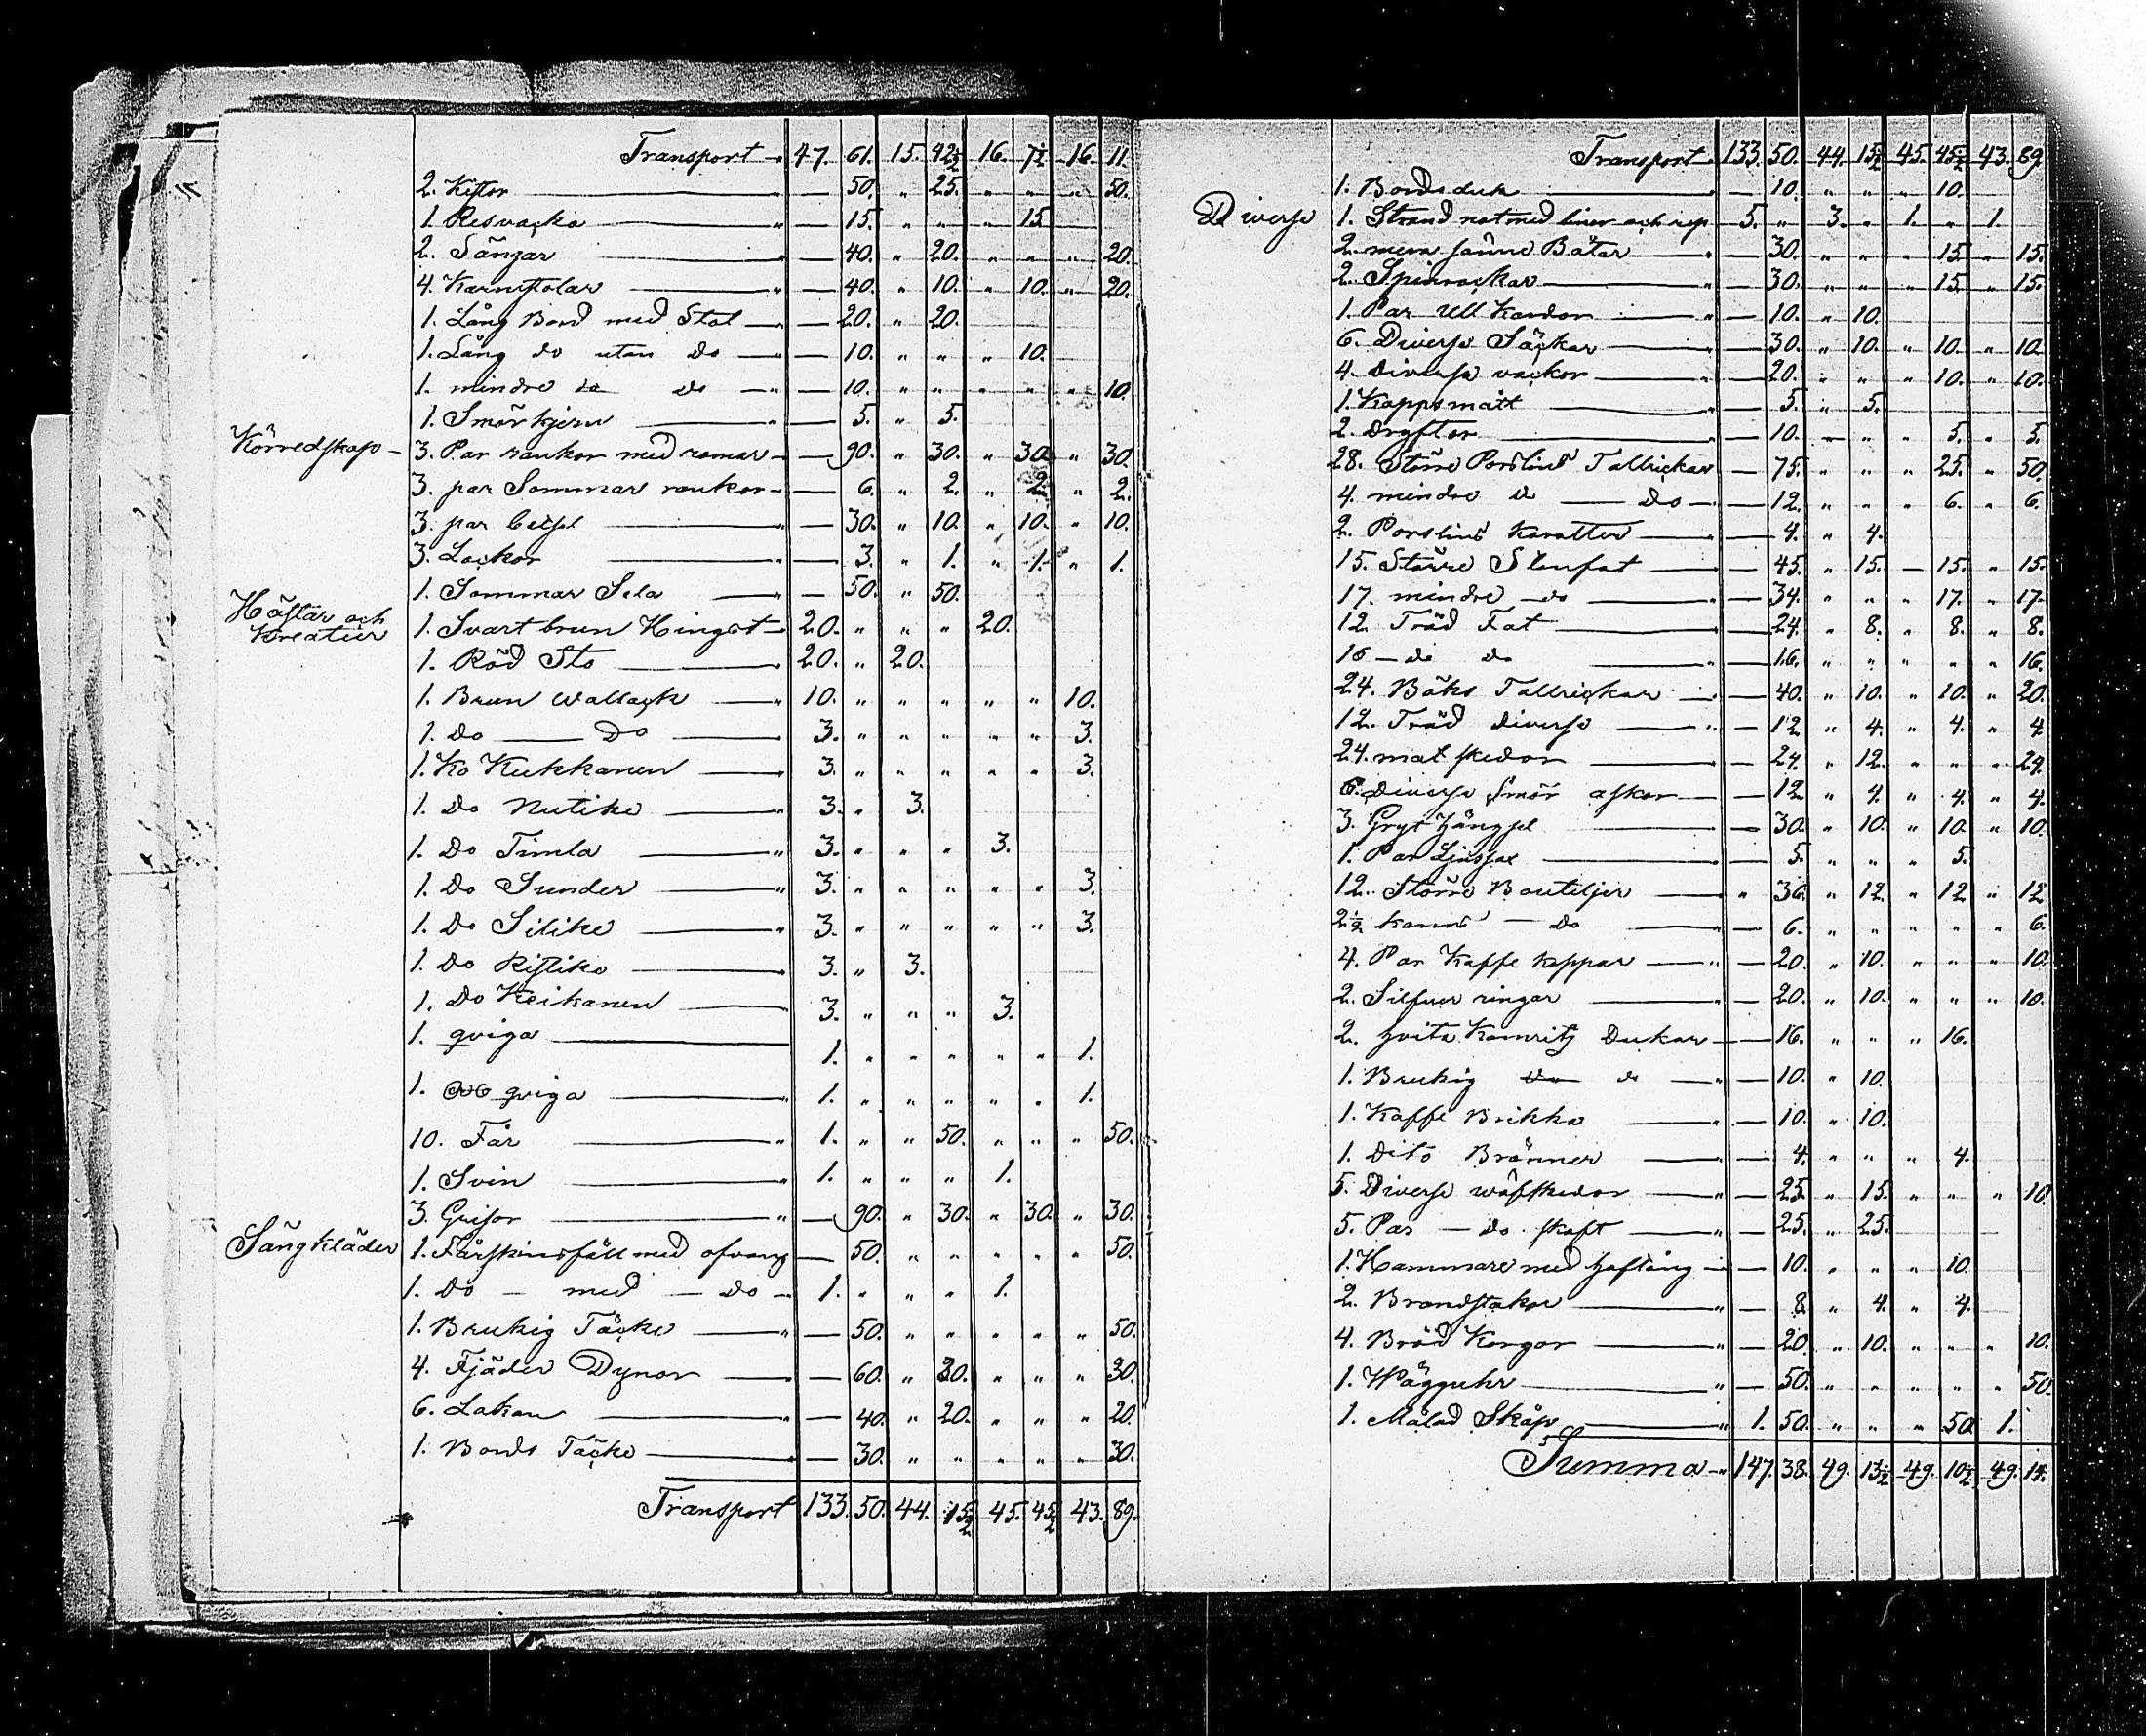 Transport " 47. 61. 15. 42½ 16. 7½ 16. 11.
2. Kistor " — 50. " 25. " " " 50.
1. Resvacka " — 15. " " " 15.
2. Sängar " — 40. " 20. " " " 20.
4. Karmstolar " — 40. " 10. " 10. " 20.
1. Lång Bord med Stol " — 20. " 20.
1. Lång do utan do " — 10. " " " 10.
1. mindre do do " — 10. " " " " " 10.
1. Smör kjern " — 5. " 5.
Körredskap - 3. Par rankor med romar " — 90. " 30. " 30. " 30.
3. par Sommar rankor " — 6. " 2. " 2. " 2.
3. par betsel " — 30. " 10. " 10. " 10.
3. Lockor " — 3. " 1. " 1. " 1.
1. Sommar Sela " — 50. " 50.
Hästar och
Kreatur
1. Svart brun Hingst " 20. " " " 20.
1. Röd Sto " 20. " 20.
1. Brun Wallack " 10. " " " " " 10.
1. Do — Do " 3. " " " " " 3.
1. Ko Kukkanen " 3. " " " " " 3.
1. Do Nutike " 3. " 3.
1. Do Timla " 3. " " " 3.
1. Do Sunder " 3. " " " " " 3.
1. Do Silike " 3. " " " " " 3.
1. Do Ristike " 3. " 3.
1. Do Keikanen " 3. " " " 3.
1. qviga 1. " " " " " 1.
1. qviga " 1. " " " " " 1.
10. Får " 1. " " 50. " " " 50.
1. Svin " 1. " " " 1.
3. Grisor " — 90. " 30. " 30. " 30.
Sängkläder 1. Fårskinsfäll med ofvary — 50. " " " " " 50.
1. Do — med — Do - 1. " " " 1.
1. Brukig Täcke " — 50. " " " " " 50.
4. Fjäder Dynor — 60. " 30. " " " 30.
6. Lakan " — 40. " 20. " " " 20.
1. Bords Täcke " — 30. " " " " " 30.
Transport 133. 50. 44. 15½ 45. 45½ 43. 89.
Transport " 133. 50. 44. 15½ 45. 45½ 43. 89.
1. Bordsduk " — 10. " " " 10.
Diverse 1. Strand not med linor och rep 5. " 3. " 1. " 1.
2. mera sämre Båtar " — 30. " " " 15. " 15.
2. Spinrockar " — 30. " " " 15. " 15.
1. Par Ull Kardor " — 10. " 10.
6. Diverse Säckar " — 30. " 10. " 10. " 10.
4. Diverse vackor " — 20. " " " 10. " 10.
1. Kappsmått " — 5. " 5.
2. Dryftor " — 10. — " " 5. " 5.
28. Större Porslins Tallrickar — 75. " " " 25. " 50.
4. mindre d — Do — 12. " " " 6. " 6.
2. Porslins Karotter — 4. " 4.
15. Större Stenfat — 45. " 15. — 15. " 15.
17. mindre do " — 34. " " " 17. " 17.
12. Träd Fat " — 24. " 8. " 8. " 8.
16 — do do " — 16. " " " " " 16.
24. Böks Tallrickar " — 40. " 10. " 10. " 20.
12. Träd diverse " — 12. " 4. " 4. " 4.
24. mat skedar " — 24. " 12. " " "
6. Diverse Smör askor — 12. " 4. " 4. " 4.
3. Gryt hängsel — 30. " 10. " 10. " 10.
1. Par Ljussax " — 5. " " " 5.
12. Större Bouteljer " " 36. " 12. " 12. " 12.
2½ kanns — Do — 6. " " " " " 6.
4. Par Kaffe koppar " — 20. " 10. " " " 10.
2. Silfver ringar " — 20. " 10. " " " 10.
2. hvita Dukar — 16. " " " 16.
1. Brukig do d " — 10. " 10.
1. Kaffe Brikka " — 10. " 10.
1. Dito Bränner " — 4. " " " 4.
5. Diverse wäfskedar " — 25. " 15. " " " 10.
5. Par — do skaft " — 25. " 25.
1. Hammare med hoftång — 10. " " " 10.
2. Brandstakar " — 8. " 4. " 4.
4. Bröd Korgar " — 20. " 10. " " " 10.
1. Wägguhr " — 50. " " " " " 50.
1. Målad Skåp " 1. 50. " " " 50. 1.
Summa " 147. 38. 49. 13½ 49. 10½ 49. 14.